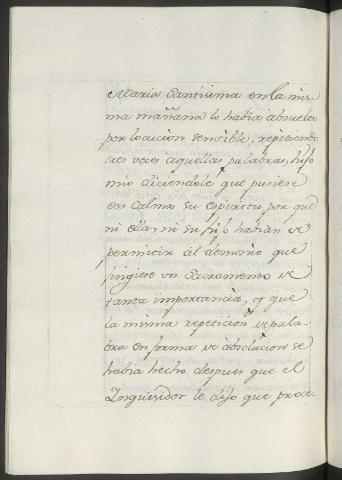 Maria Santisima en la mis-
ma mañana lo habia absuelto
por locucion sensible, repitiendo
tres veces aquellas palabras, hijo
mio diciendole que pusiese
en calma su espiritu por que
ni ella, ni su hijo habian de
permitir al demonio que
fingiese un Sacramento de
tanta importancia, y que
la misma repeticion de pala-
bra en forma de absolucion se
habia hecho despues que el
Inquisidor le dijo que proce-